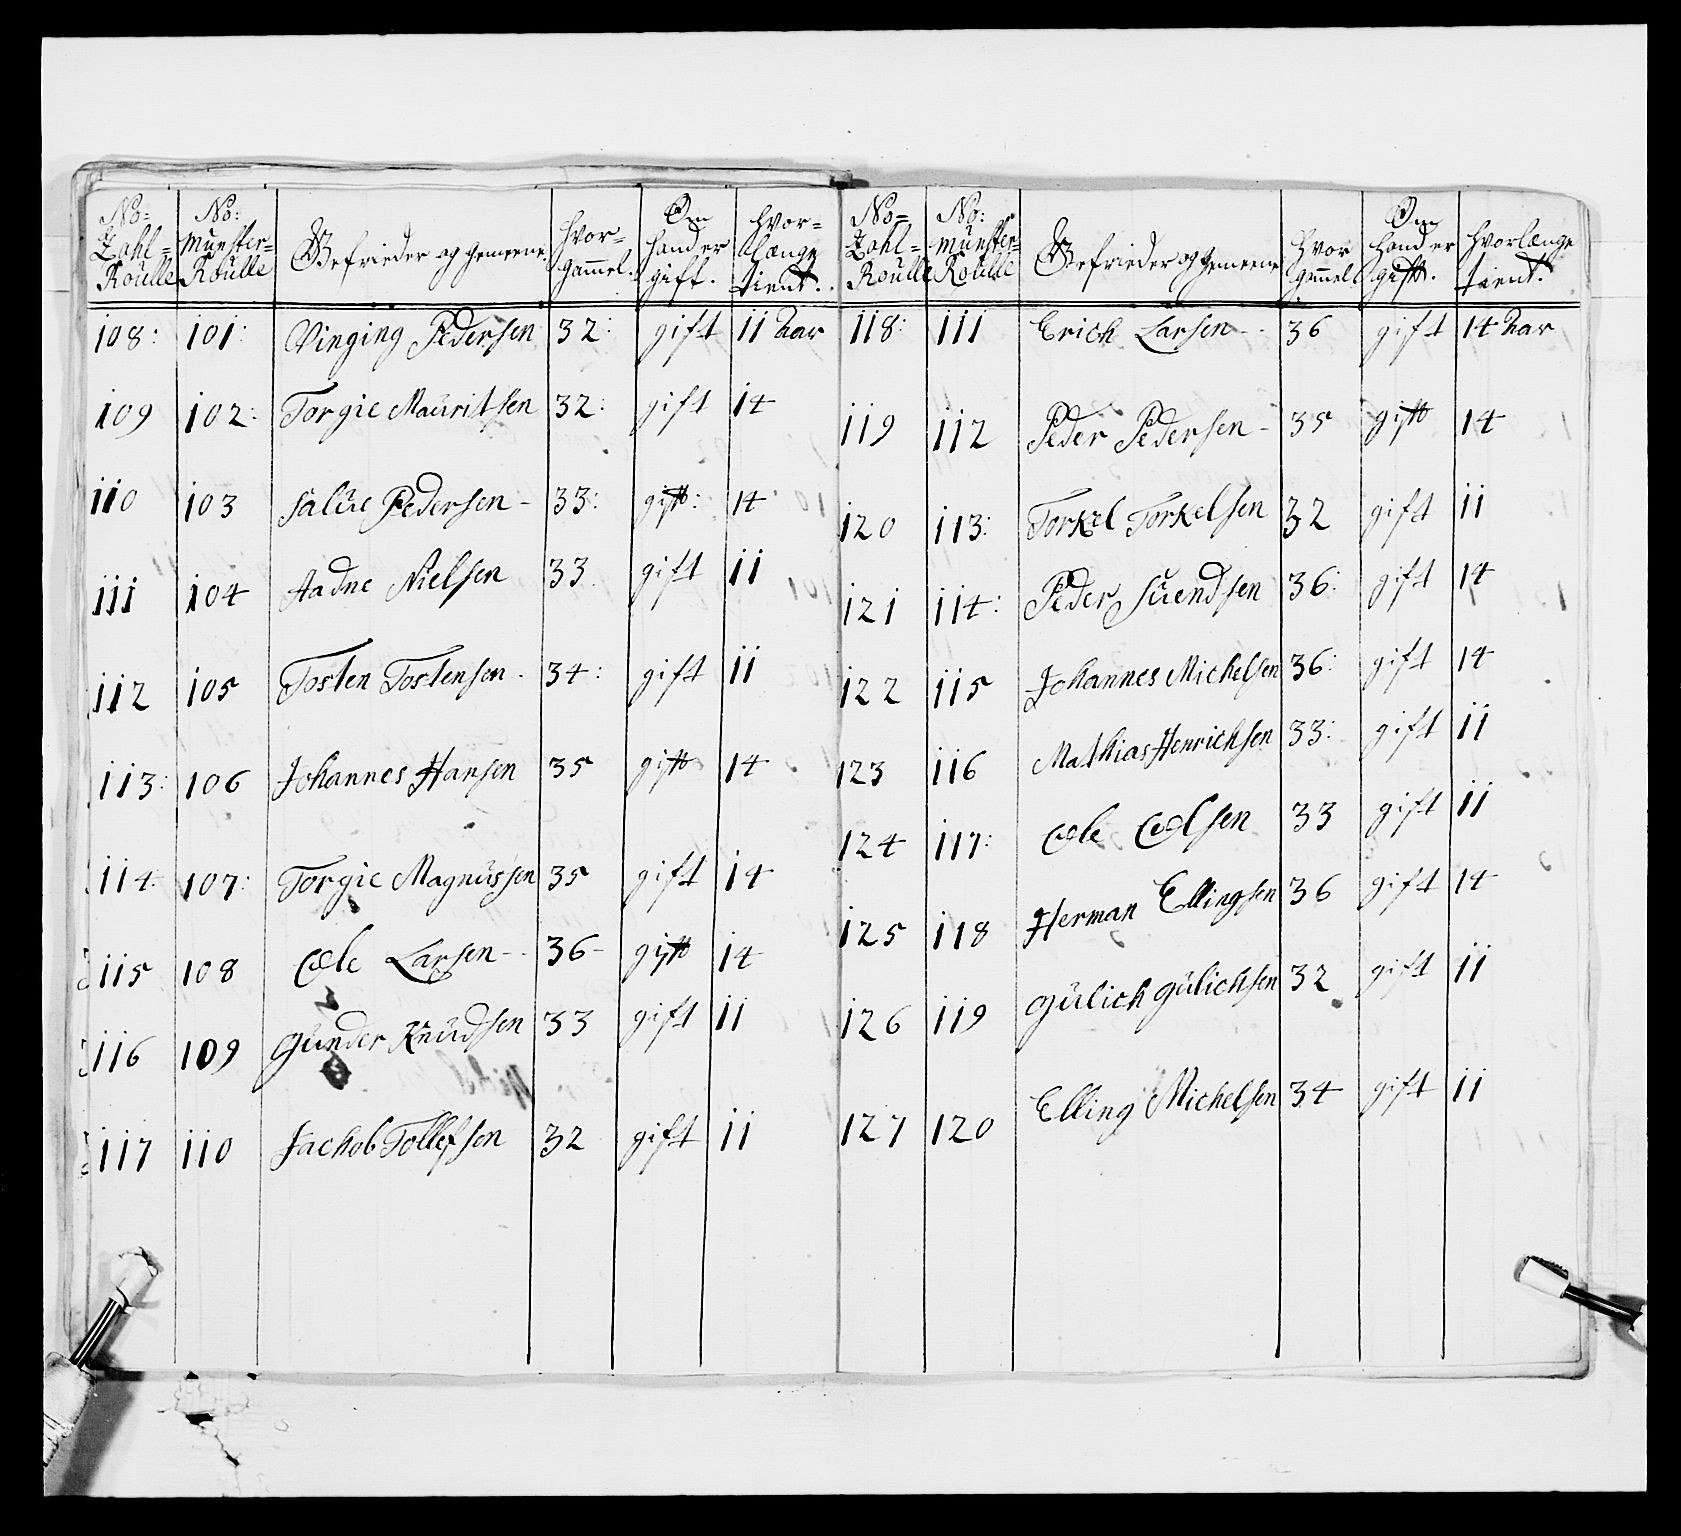 No= Zahl= Roulle | No: Munster= Roulle | Befrieder og gemeene. | Hvor= gammel. | Om hand er gift. | Hvor= længe tient.
108: 101: Vinging Pedersen 32: gift 11 Aar
109 102: Torgie Mauritsen 32: gift 14
110 103 Salve Pedersen - 33: gift: 14
111 104 Aadne Nielsen 33 gift 11
112 105 Tosten Tostensen - 34: gift 11
113: 106 Johannes Hansen 35 gift 14
114: 107: Torgie Magnussen 35 gift 14
115 108 Ole Larsen -- 36- gift 14
116 109 Gunder Knudsen 33 gift 11
117 110 Jachob Tollefsen 32 gift 11
No= Zahl= Roulle | No: Munster= Roulle | Befrieder og gemeene | Hvor gammel | Om hand er gift. | Hvorlænge tient.
118: 111 Erich Larsen -- 36 gift 14 Aar
119 112 Peder Pedersen - 35 gift 14
120 113: Torkel Torkelsen 32 gift 11
121 114: Peder Suendsen 36: gift 14
122 115 Johannes Michelsen 36: gift 14
123 116 Mathias Henrichsen 33: gift 11
124 117: Ole Olsen 33 gift 11
125 118 Herman Ellingsen 36 gift 14
126 119 Gulich Gulichsen 32 gift 11
127 120 Elling Michelsen 34 gift 11